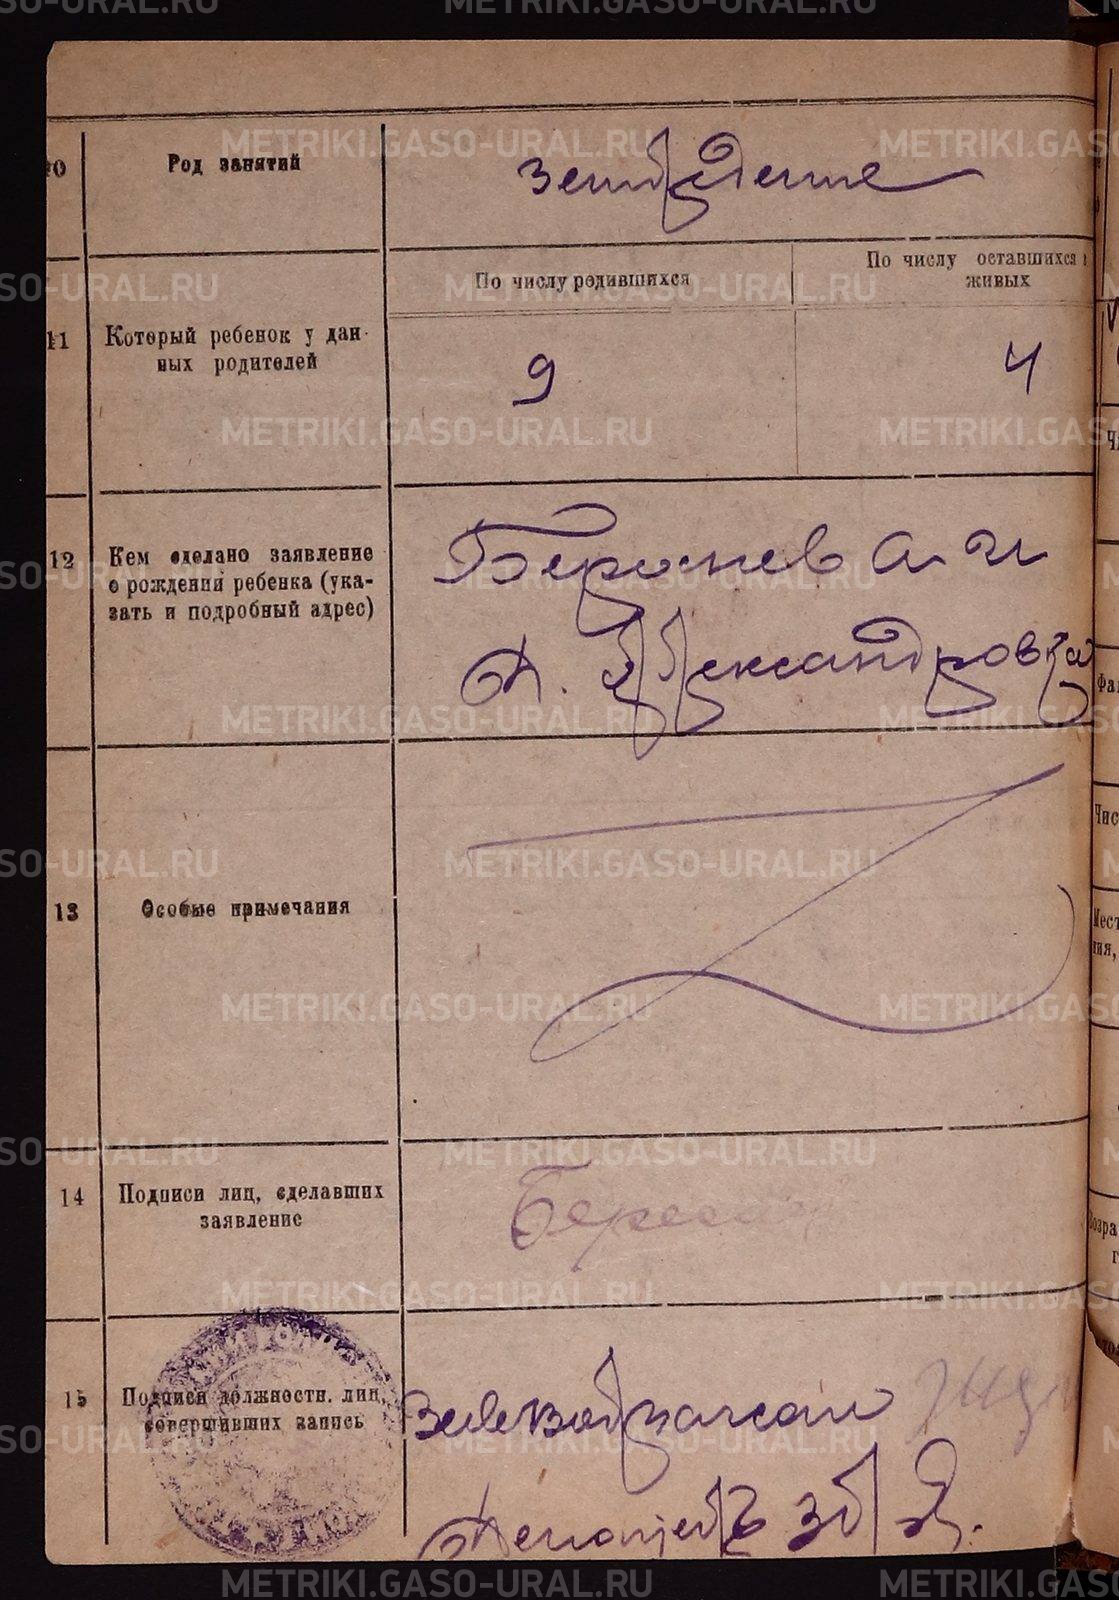 10 Род занятий
земледелие
По числу родившихся
По числу оставшихся в живых
11 Который ребенок у дан-
ных родителей
9
4
12 Кем сделано заявление
о рождении ребенка (ука-
зать и подробный адрес)
Береснев А И
д. Александровка
13 Особые примечания
14 Подписи лиц, сделавших
заявление
15 Подписи должностн. лиц,
совершивших запись
Зав
Делопр
METRIKI.GASO-URAL.RU